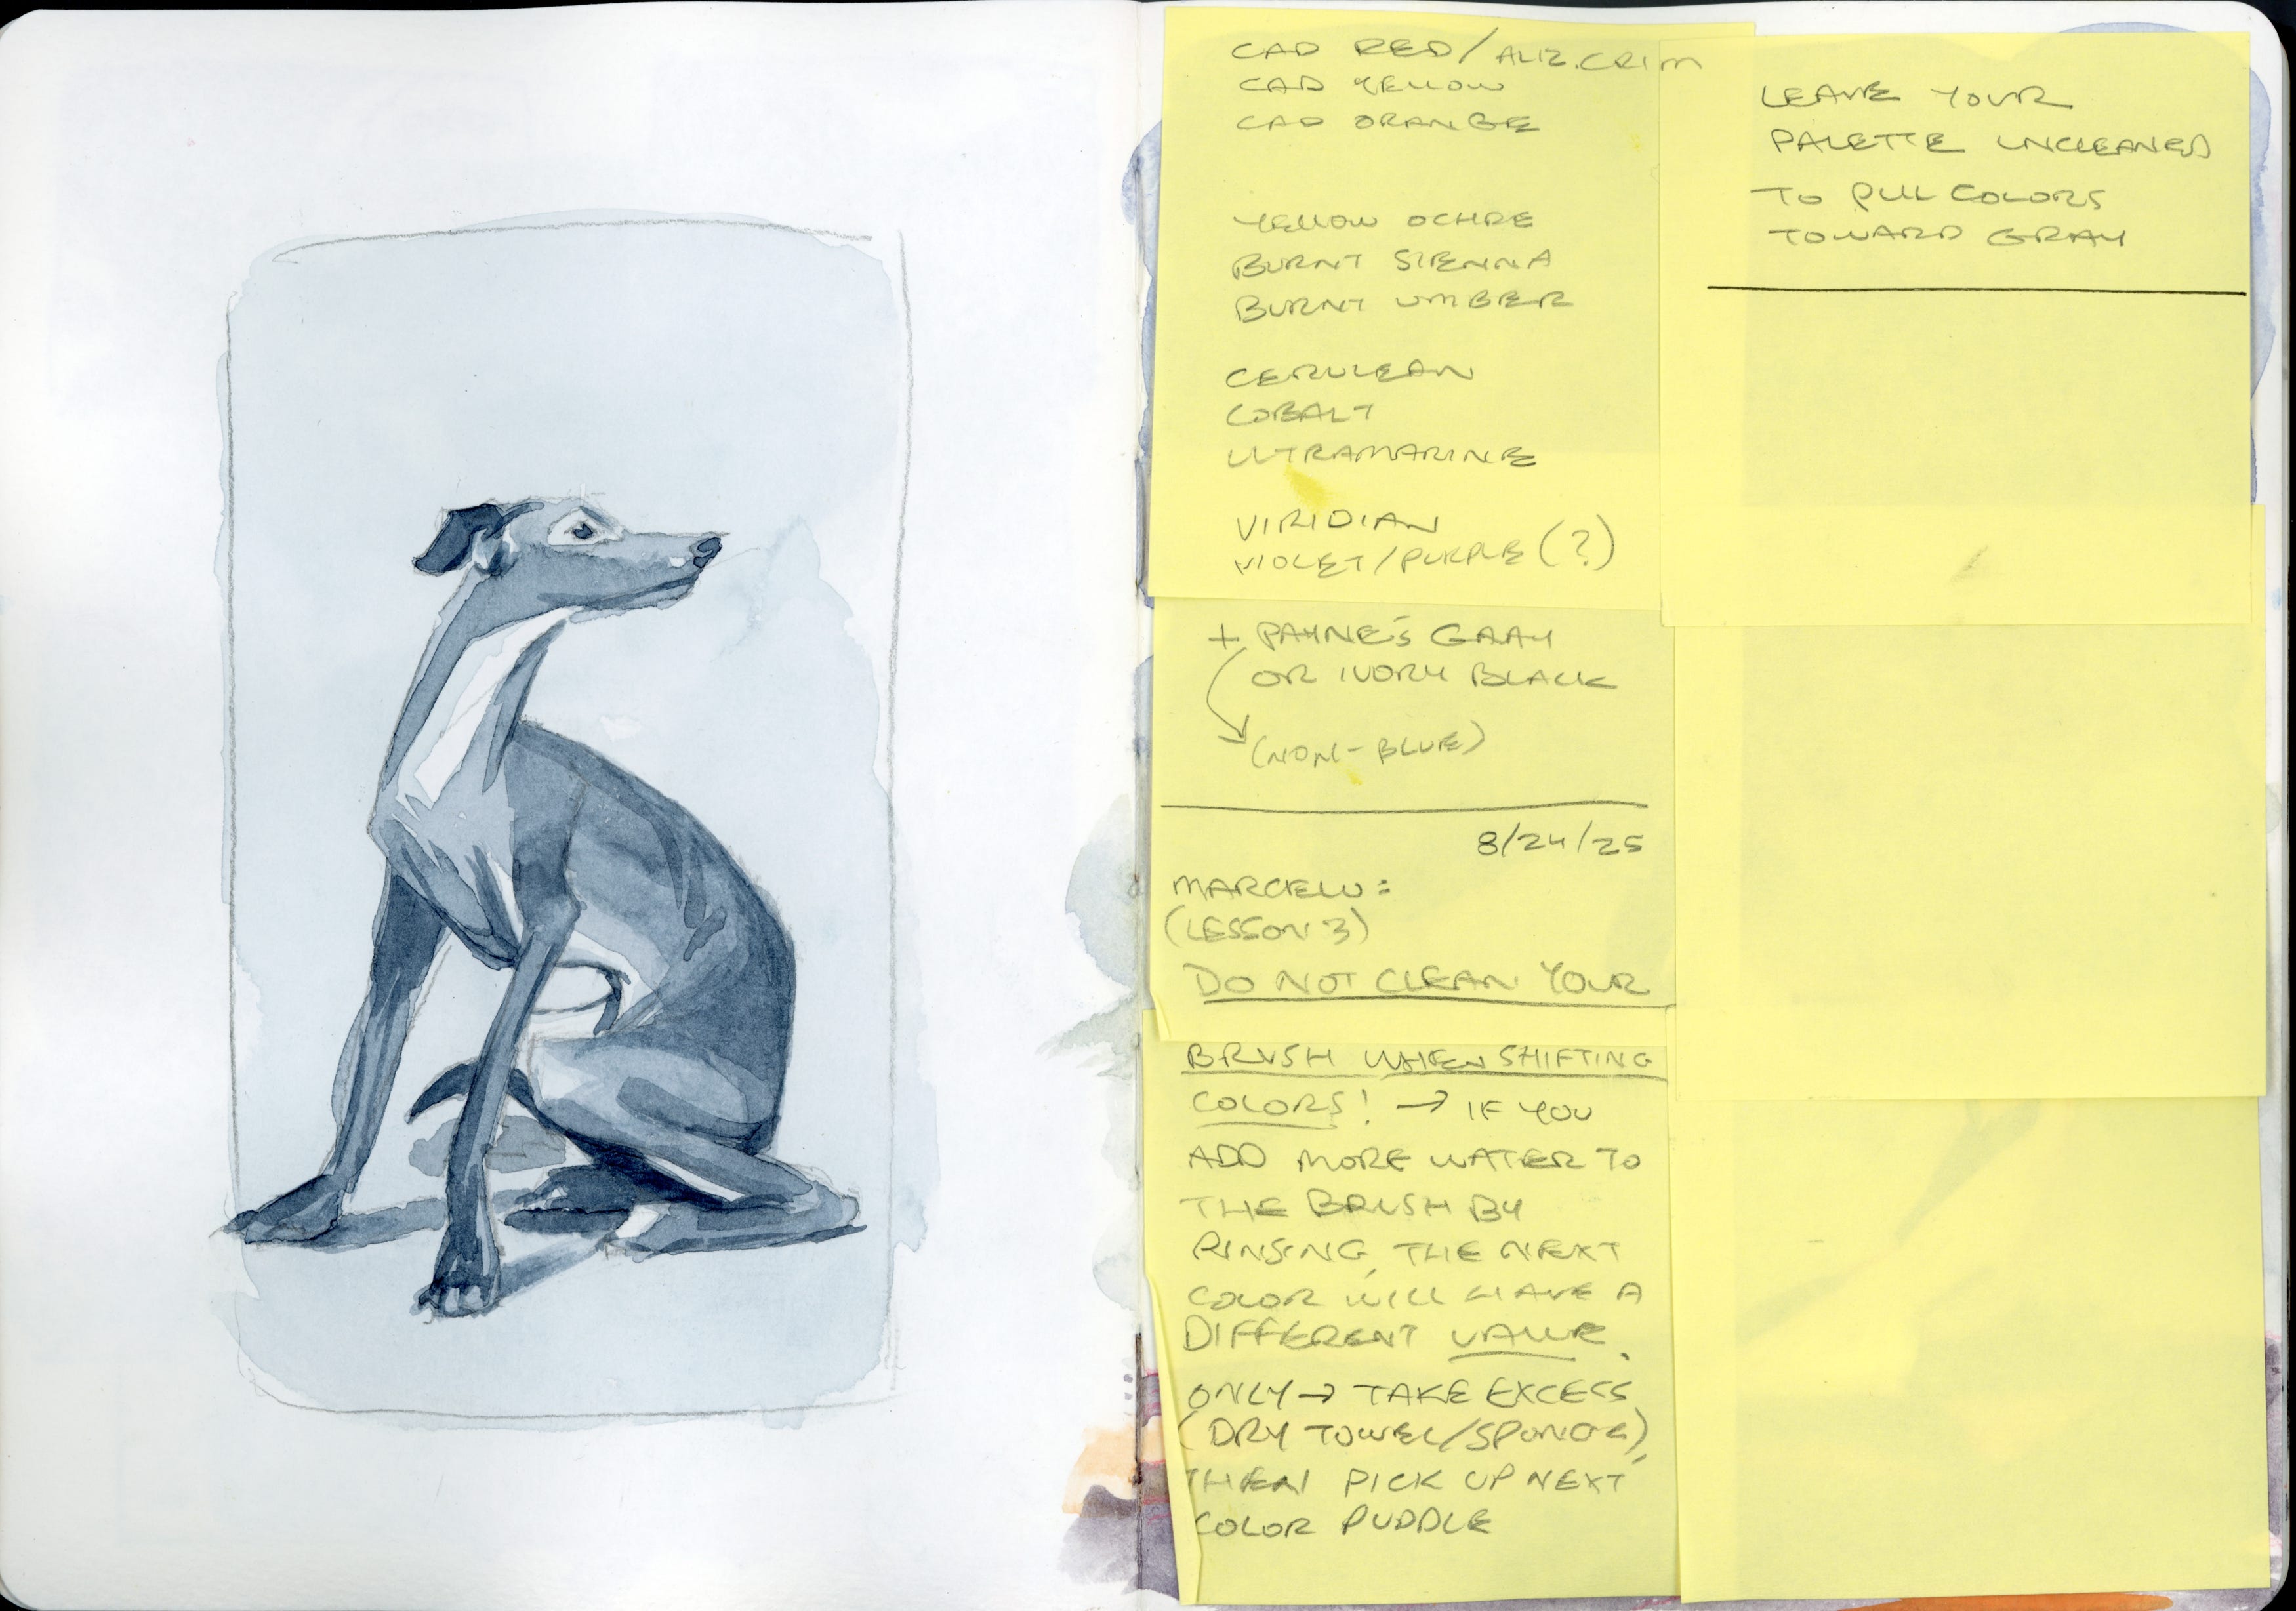 CAD RED/ALIZ.CRIM
CAD YELLOW
CAD ORANGE
YELLOW OCHRE
BURNT SIENNA
BURNT UMBER
CERULEAN
COBALT
ULTRAMARINE
VIRIDIAN
VIOLET/PURPLE (?)
+ PAYNE'S GRAY
OR IVORY BLACK
(NON-BLUE)
8/24/25
MARCELO:
(LESSON 3)
DO NOT CLEAN YOUR
BRUSH WHEN SHIFTING
COLORS! → IF YOU
ADD MORE WATER TO
THE BRUSH BY
RINSING, THE NEXT
COLOR WILL HAVE A
DIFFERENT VALUE.
ONLY → TAKE EXCESS
(DRY TOWEL/SPONGE),
THEN PICK UP NEXT
COLOR PUDDLE
LEAVE YOUR
PALETTE UNCLEANED
TO PULL COLORS
TOWARD GRAY